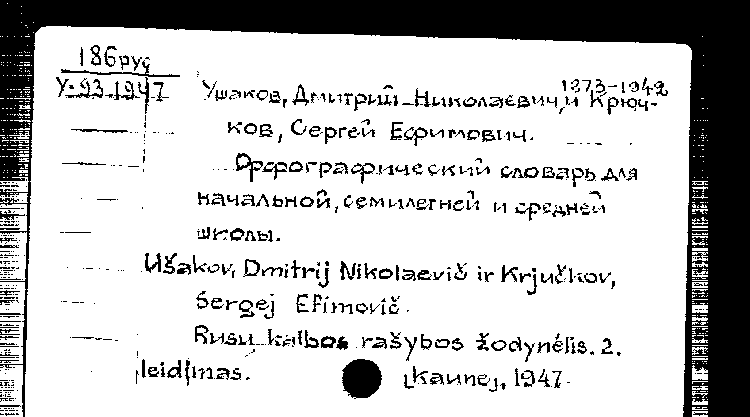 186рус
У-93.1947
1873-1942
Ушаков, Дмитрий Николаевич, и Крюч-
ков, Сергей Ефимович.
Орфографический словарь для
начальной, семилетней и средней
школы.
Ušakov, Dmitrij Nikolaevič ir Krjučkov,
Sergej Efimovič.
Rusų kalbos rašybos žodynėlis. 2.
leidimas. [Kaune], 1947.